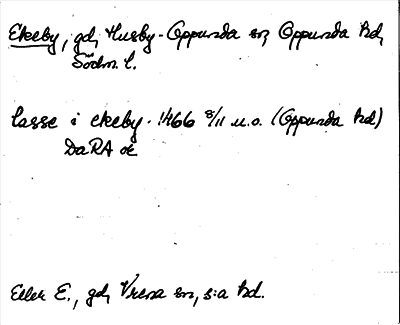 Ekeby, gd, Husby-Oppunda sn, Oppunda hd,
Södm. l.
lasse i ekeby. 1466 8/11 u.o. (Oppunda hd)
DaRA or
Eller E., gd, Vrena sn, s:a hd.